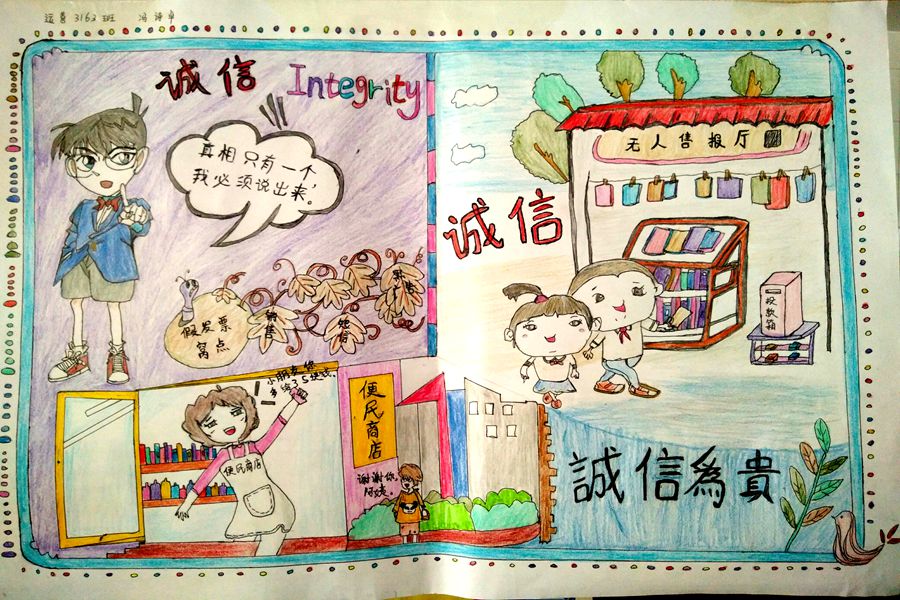 运营3163班
诚信 Integrity
真相只有一个，
我必须说出来。
假发票
窝点
销售
小朋友你
多给35块钱.
便民商店
便民商店
谢谢你,
阿姨。
无人售报厅
诚信
投款箱
誠信為貴